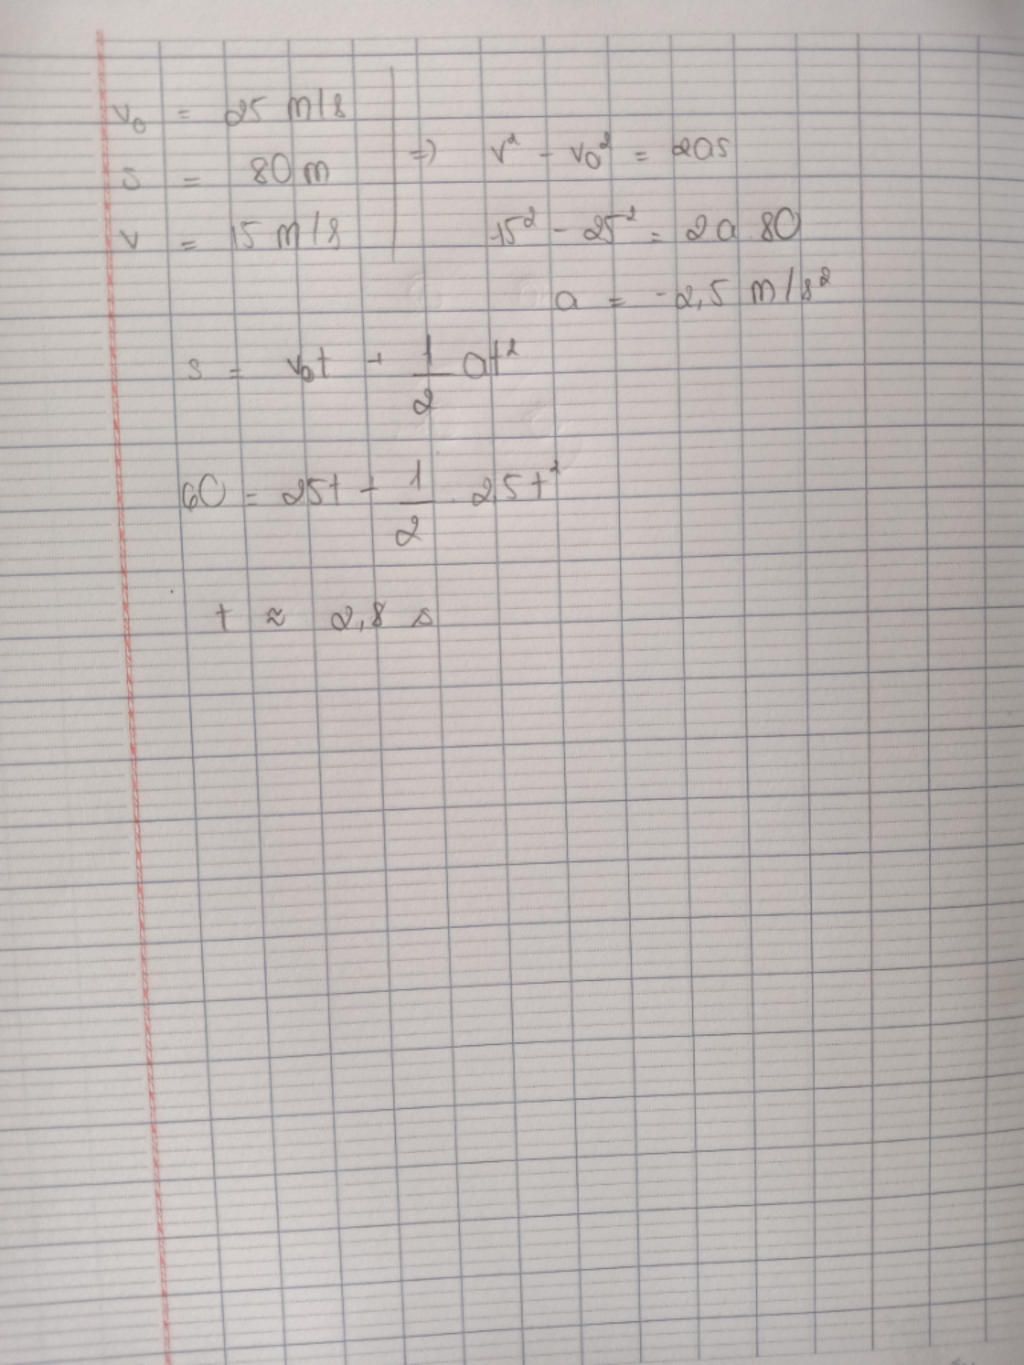 v₀ = 25 m/s
s = 80 m
v = 15 m/s
⇒ v² - v₀² = 2as
15² - 25² = 2a 80
a = -2,5 m/s²
s = v₀t + 1/2 at²
60 = 25t - 1/2 . 2,5t²
t ≈ 2,8 s